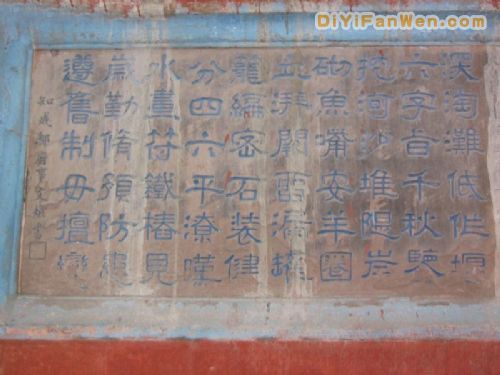 DiYiFanWen.com
深淘灘低作堰
六字旨千秋鑒
挖河沙堆隄岸
砌魚嘴安羊圈
立湃闕留漏罐
籠編密石裝健
分四六平潦暵
水畫符鐵椿見
歲勤修預防患
遵舊制毋擅變
知成都府事文煥書